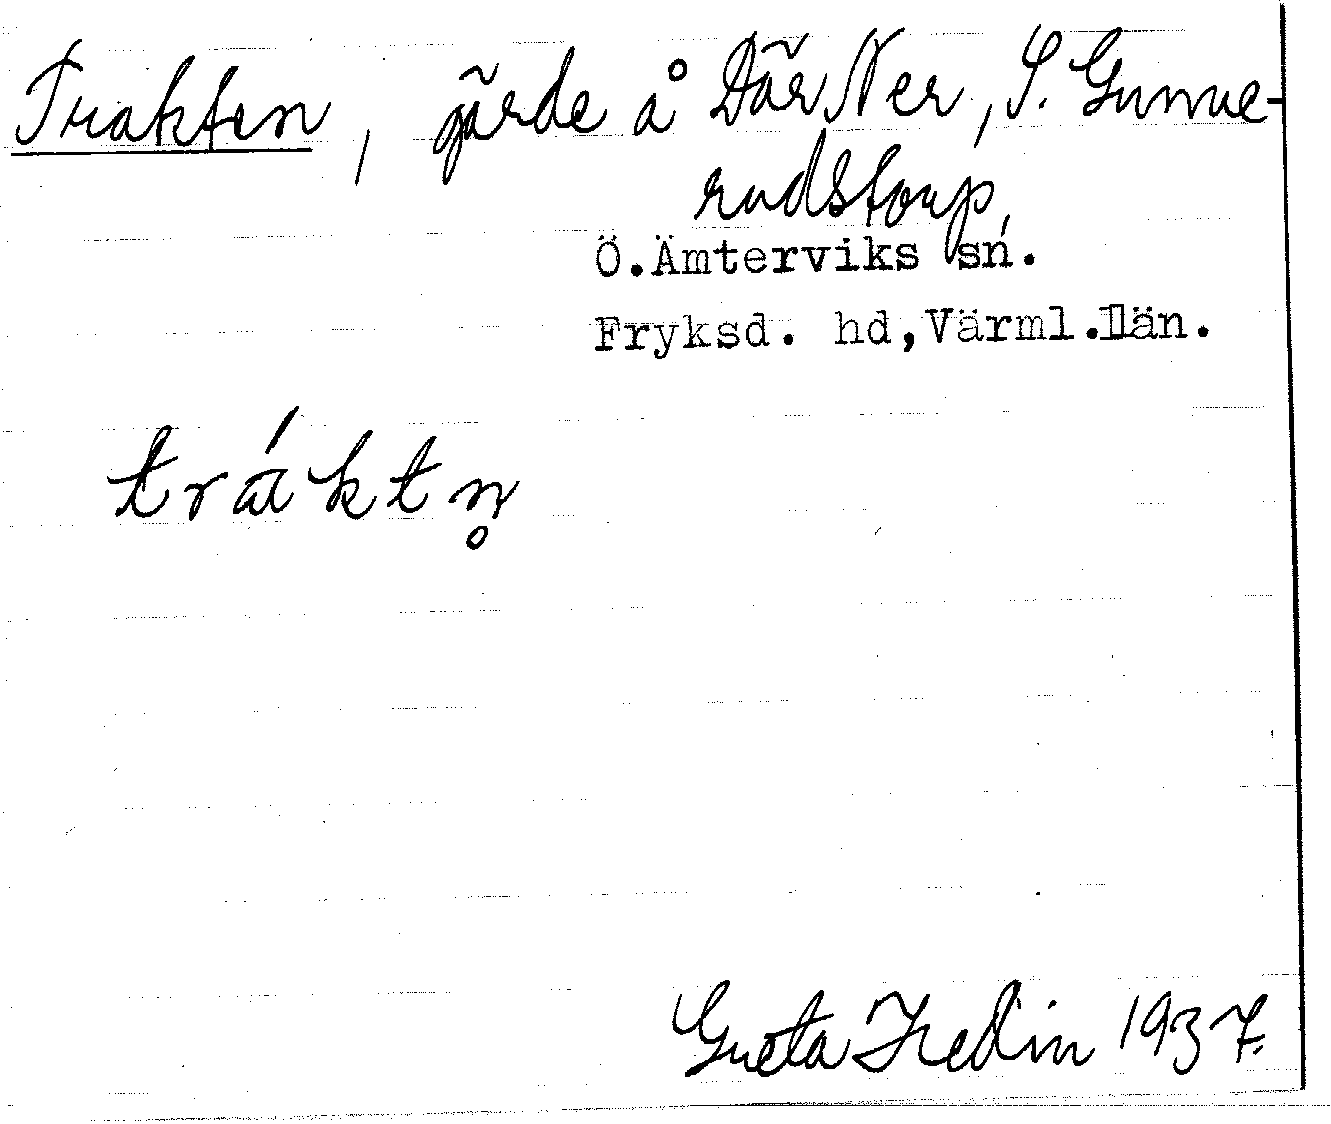 Trakten, gärde å Där Ner, S. Gunne-
rudstorp,
Ö.Ämterviks sn.
Fryksd. hd,Värml.län.
tráktn̥
Greta Hedin 1937.